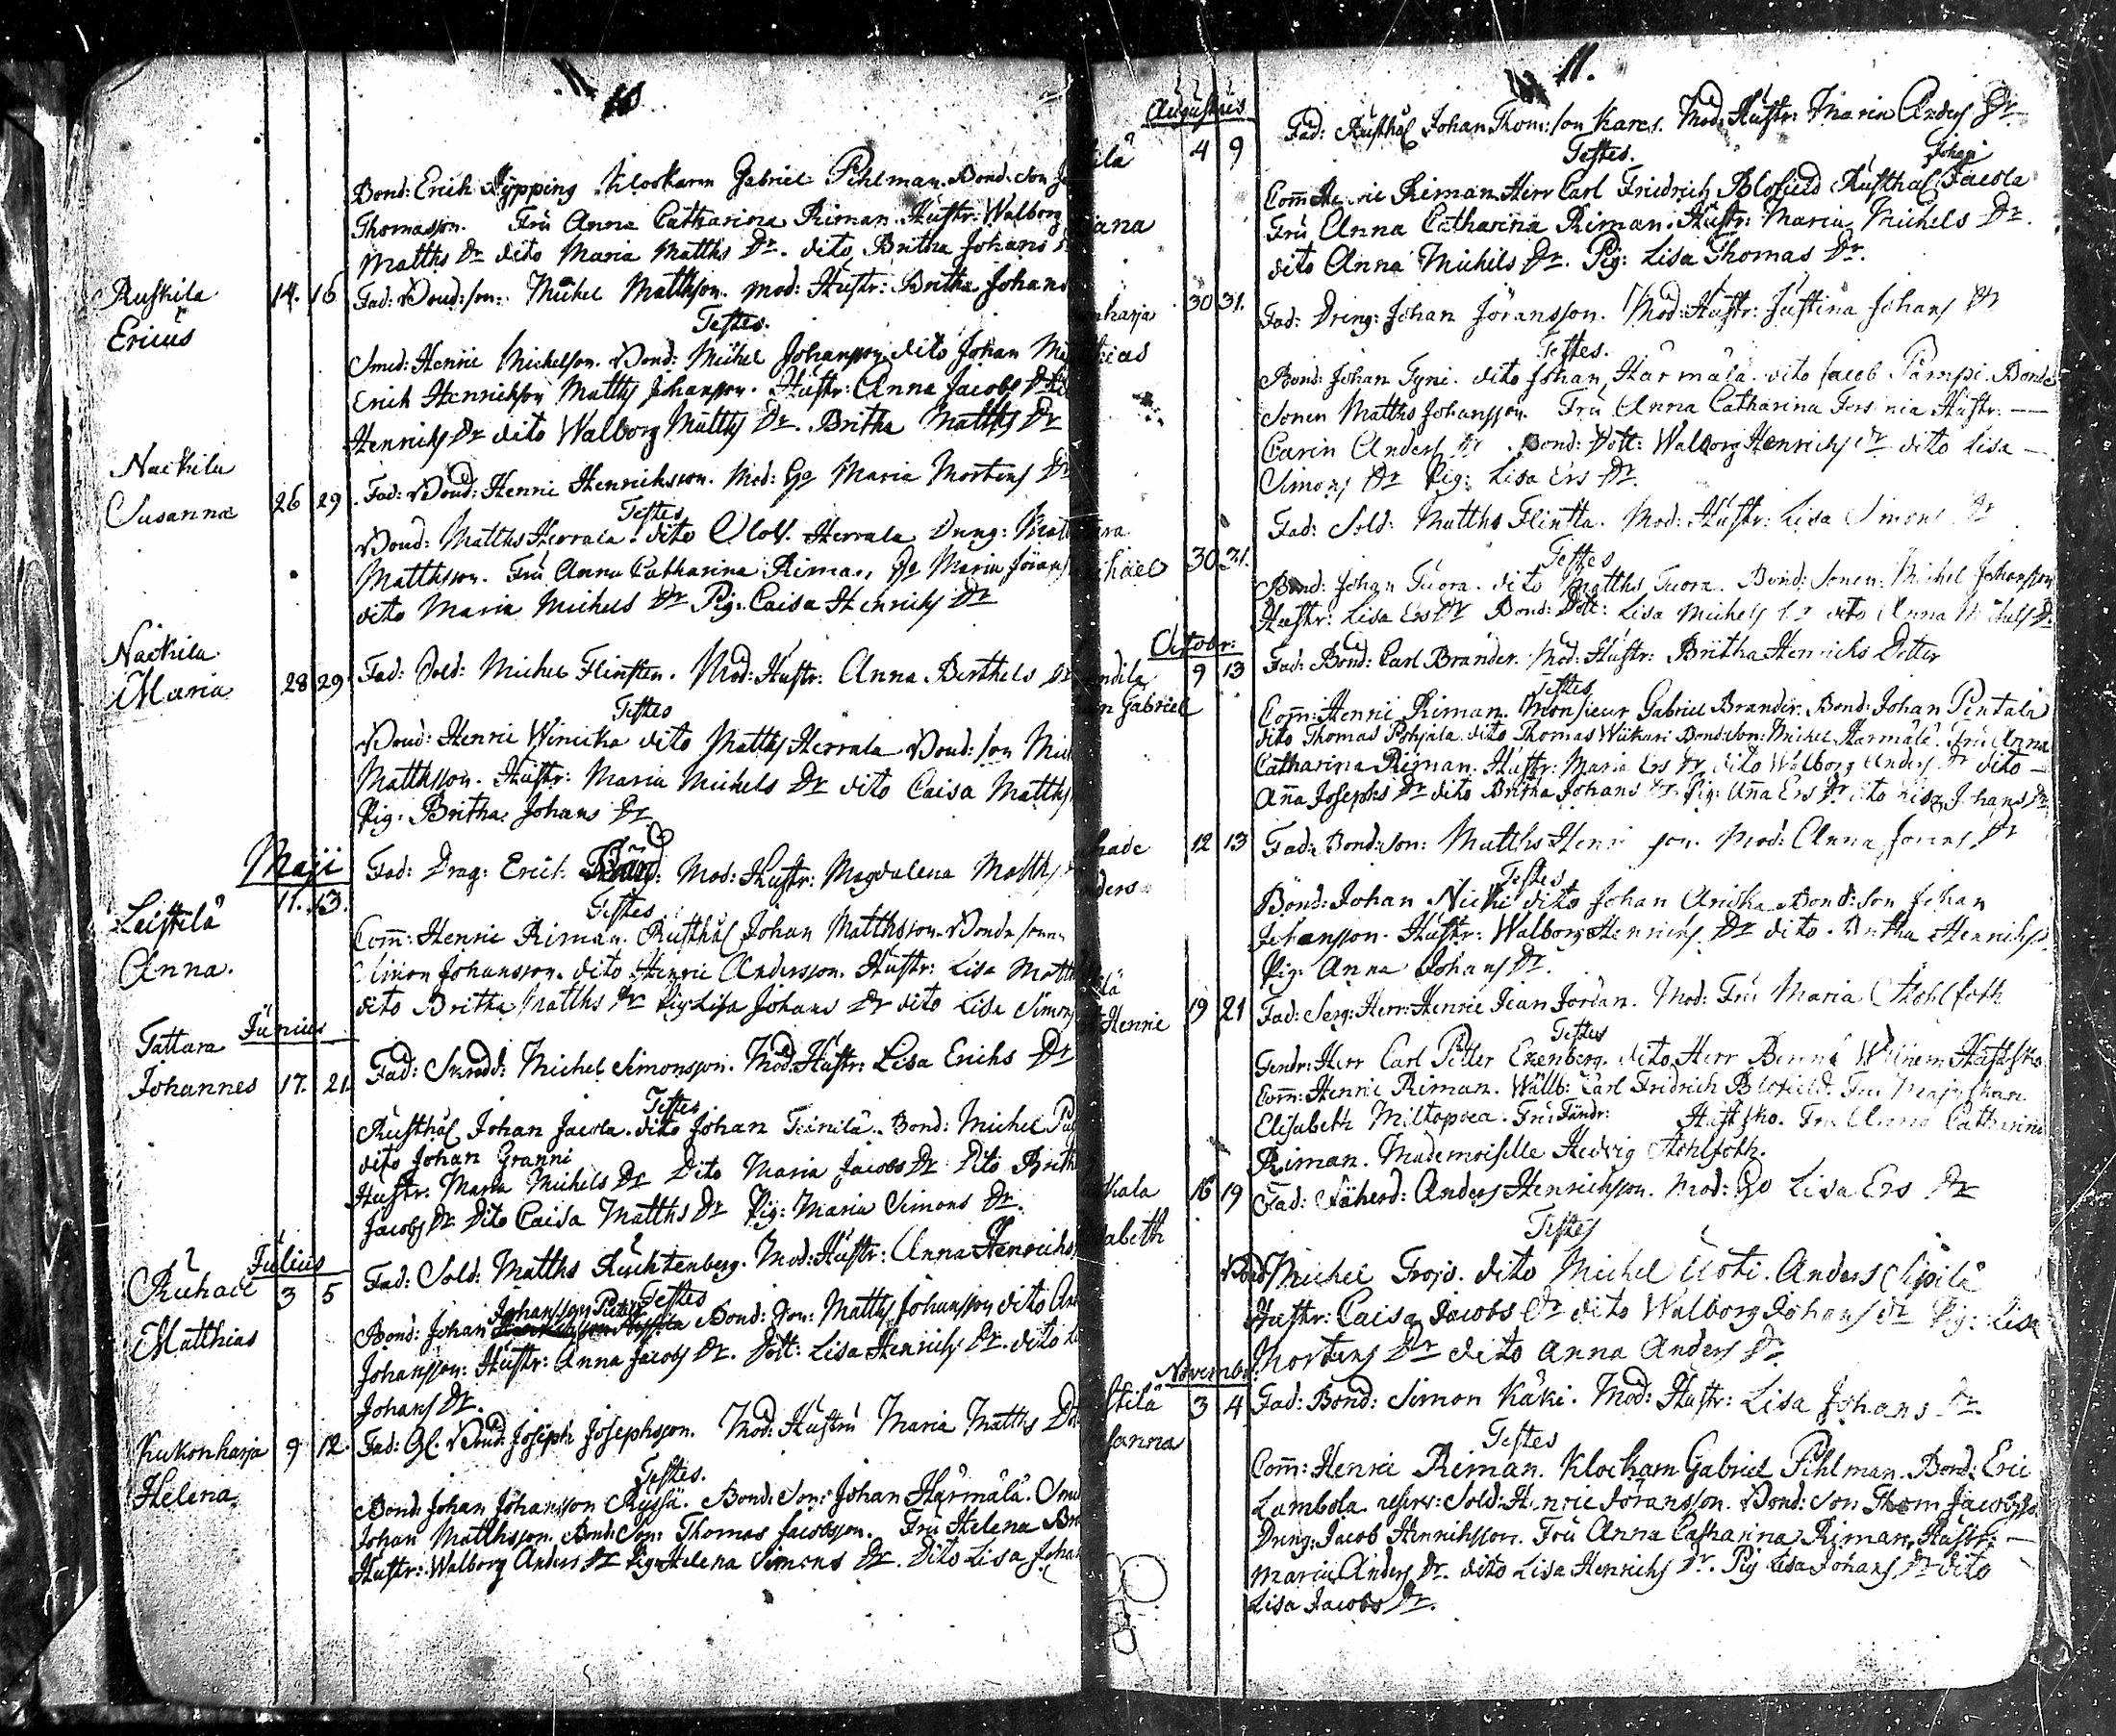 10
Bond: Erich Kypping Klockaren Gabriel Pihlman. Bond: son
Thomasson. Fru Anna Catharina Riman. Hustr: Walborg
Matths Dr dito Maria Matths Dr. dito Britha Johans
Ruskila 14. 16 Fad: Bond: son: Michel Matthson. Mod: Hustr: Britha Johans
Ericus
Testes.
Smed: Henric Michelson. Bond: Michel Johansson dito Johan
Erich Henrickson Matths Johansson. Hustr: Anna Jacobs
Henrichs Dr dito Walborg Matths Dr. Britha Matths Dr
Nackila
Susanna 26 29 Fad: Bond: Henric Henrichsson. Mod: Maria Mortens Dr
Testes
Bond: Matths Herrala. dito Olof Herrala Dreng:
Matthsson. Fru Anna Catharina Riman, Maria Jörans
dito Maria Michels Dr Pig: Caisa Henrichs Dr
Nackila
Maria 28 29 Fad: Sold: Michel Flinsten. Mod: Hustr: Anna Berthels
Testes
Bond: Henric Winicka dito Matths Herrala Bond: son
Matthsson. Hustr: Maria Michels Dr dito Caisa Matths
Pig: Britha Johans Dr
Maji
Leistilä 11. 13. Fad: Drag: Erich Mod: Hustr: Magdalena Matths
Anna.
Testes
Com: Henric Riman. Rusthål Johan Matthsson. Bonde sonen
Simon Johansson. dito Henric Andersson. Hustr: Lisa
dito Britha Matths Dr Pig Lisa Johans Dr dito Lisa Simons
Tattara Junius
Johannes 17. 21 Fad: Skrädd: Michel Simonsson. Mod: Hustr: Lisa Erichs Dr
Testes
Rusthål Johan Jacola. dito Johan Bond: Michel
dito Johan Granni
Hustr: Maria Michels Dr Dito Maria Jacobs Dr Dito
Jacobs Dr Dito Caisa Matths Dr Pig: Maria Simons Dr.
Julius
3 5 Fad: Sold: Matths Mod: Hustr: Anna Henrichs
Matthias
Testes
Johansson
Bond: Johan Bond: Son: Matths Johansson dito
Johansson: Hustr: Anna Jacobs Dr. Dott: Lisa Henrichs Dr. dito
Johans Dr.
Kukonharja 9 12. Fad: Bond: Joseph Josephsson. Mod: Hustru Maria Matths
Helena
Testes.
Bond: Johan Johansson Bond: Son: Johan Härmälä.
Johan Matthsson. Bond: Son: Thomas Jacobsson. Fru Helena
Hustr: Walborg Anders Dr Pig: Helena Simons Dr. Dito Lisa
11.
Augustus
4 9 Fad: Rusthål Johan Thom: son Kares. Mod: Hustr: Maria Anders Dr
Testes.
Johan
Com: Henric Riman. Herr Carl Friedrich Blofield Rusthål Jacola
Fru Anna Catharina Riman. Hustr: Maria Michels Dr.
dito Anna Michels Dr. Pig: Lisa Thomas Dr.
30 31. Fad: Dreng: Johan Jöransson. Mod: Hustr: Justina Johans Dr
Testes.
Bond: Johan Tyni. dito Johan Härmälä. dito Jacob Pamppi. Bonde
Sonen Matths Johansson. Fru Anna Catharina Hustr: —
Carin Anders Dr. Bond: Dott: Walborg Henrichs Dr dito Lisa —
Simons Dr Pig: Lisa Ers Dr.
30 31. Fad: Sold: Matths Flintta. Mod: Hustr: Lisa Simons Dr
Testes
Bond: Johan Tuora. dito Matths Tuora. Bond: Sonen: Michel Johansson
Hustr: Lisa Ers Dr Bond: Dott: Lisa Michels Dr dito Anna Michels Dr
Octobr:
9 13 Fad: Bond: Carl Brander. Mod: Hustr: Britha Henrichs Dotter
Gabriel
Testes
Com: Henric Riman. Monsieur Gabriel Brander. Bond: Johan Pentala
dito Thomas Pohjala. dito Thomas Wiikari Bond: Son: Michel Harmälä. Fru Anna
Catharina Riman. Hustr: Maria Ers Dr dito Walborg Anders Dr dito —
Anna Josephs Dr dito Britha Johans Dr Pig: Anna Ers Dr dito Lisa Johans Dr
12 13 Fad: Bond: son: Matths Mod: Anna Dr
Testes
Bond: Johan dito Johan Bond: son Johan
Johansson. Hustr: Walborg Henrichs Dr dito. Britha Henrichs
Pig: Anna Johans Dr.
Henric 19 21 Fad: Serg: Herr: Henric Jean Jordan. Mod: Fru Maria Stohlfoth
Testes
Herr Carl Petter Exenberg. dito Herr
Com: Henric Riman. Wällb: Carl Fridrich Blofield. Fru
Elisabeth Miltopoea. Fru Fändr: Fru Anna Catharina
Riman. Mademoiselle Hedvig Stohlfoth.
16 19 Fad: Anders Henrichsson. Mod: Lisa Ers Dr
Testes
Bond: Michel Trojs. dito Michel Uoti. Anders Sipilä
Hustr: Caisa Jacobs Dr dito Walborg Johans Dr Pig: Lisa
Mortens Dr dito Anna Anders Dr.
Novembr:
3 4 Fad: Bond: Simon Käki. Mod: Hustr: Lisa Johans Dr.
Testes
Com: Henric Riman. Klockaren Gabriel Pihlman. Bond: Eric
Lambola Sold: Henric Jöransson. Bond: son Thom:
Dreng: Jacob Henrichsson. Fru Anna Catharina Riman. Hustr: —
Maria Anders Dr. dito Lisa Henrichs Dr. Pig Lisa Johans Dr dito
Lisa Jacobs Dr.